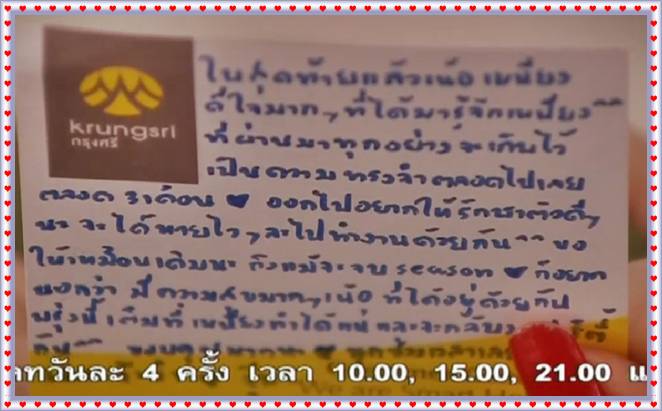 krungsri
กรุงศรี
ใบสุดท้ายแล้วเน้อ เหมี่ยง
ดีใจมากๆ ที่ได้มารู้จักเหมี่ยง^^
ที่ผ่านมาทุกอย่าง จะเก็บไว้
เป็นความทรงจำตลอดไปเลย
ตลอด 3 เดือน ♥ ออกไปอยากให้รักษาตัวดีๆ
นะ จะได้หายไวๆ จะไปทำงานด้วยกัน^^ ขอ
ให้เหมือนเดิมนะ ถึงแม้จะจบ season ♥ ก็อยาก
บอกว่า มีความสุขมากๆ เน้อ ที่ได้อยู่ด้วยกัน
พรุ่งนี้ เต็มที่ เหมี่ยงทำได้
วันละ 4 ครั้ง เวลา 10.00, 15.00, 21.00 แ